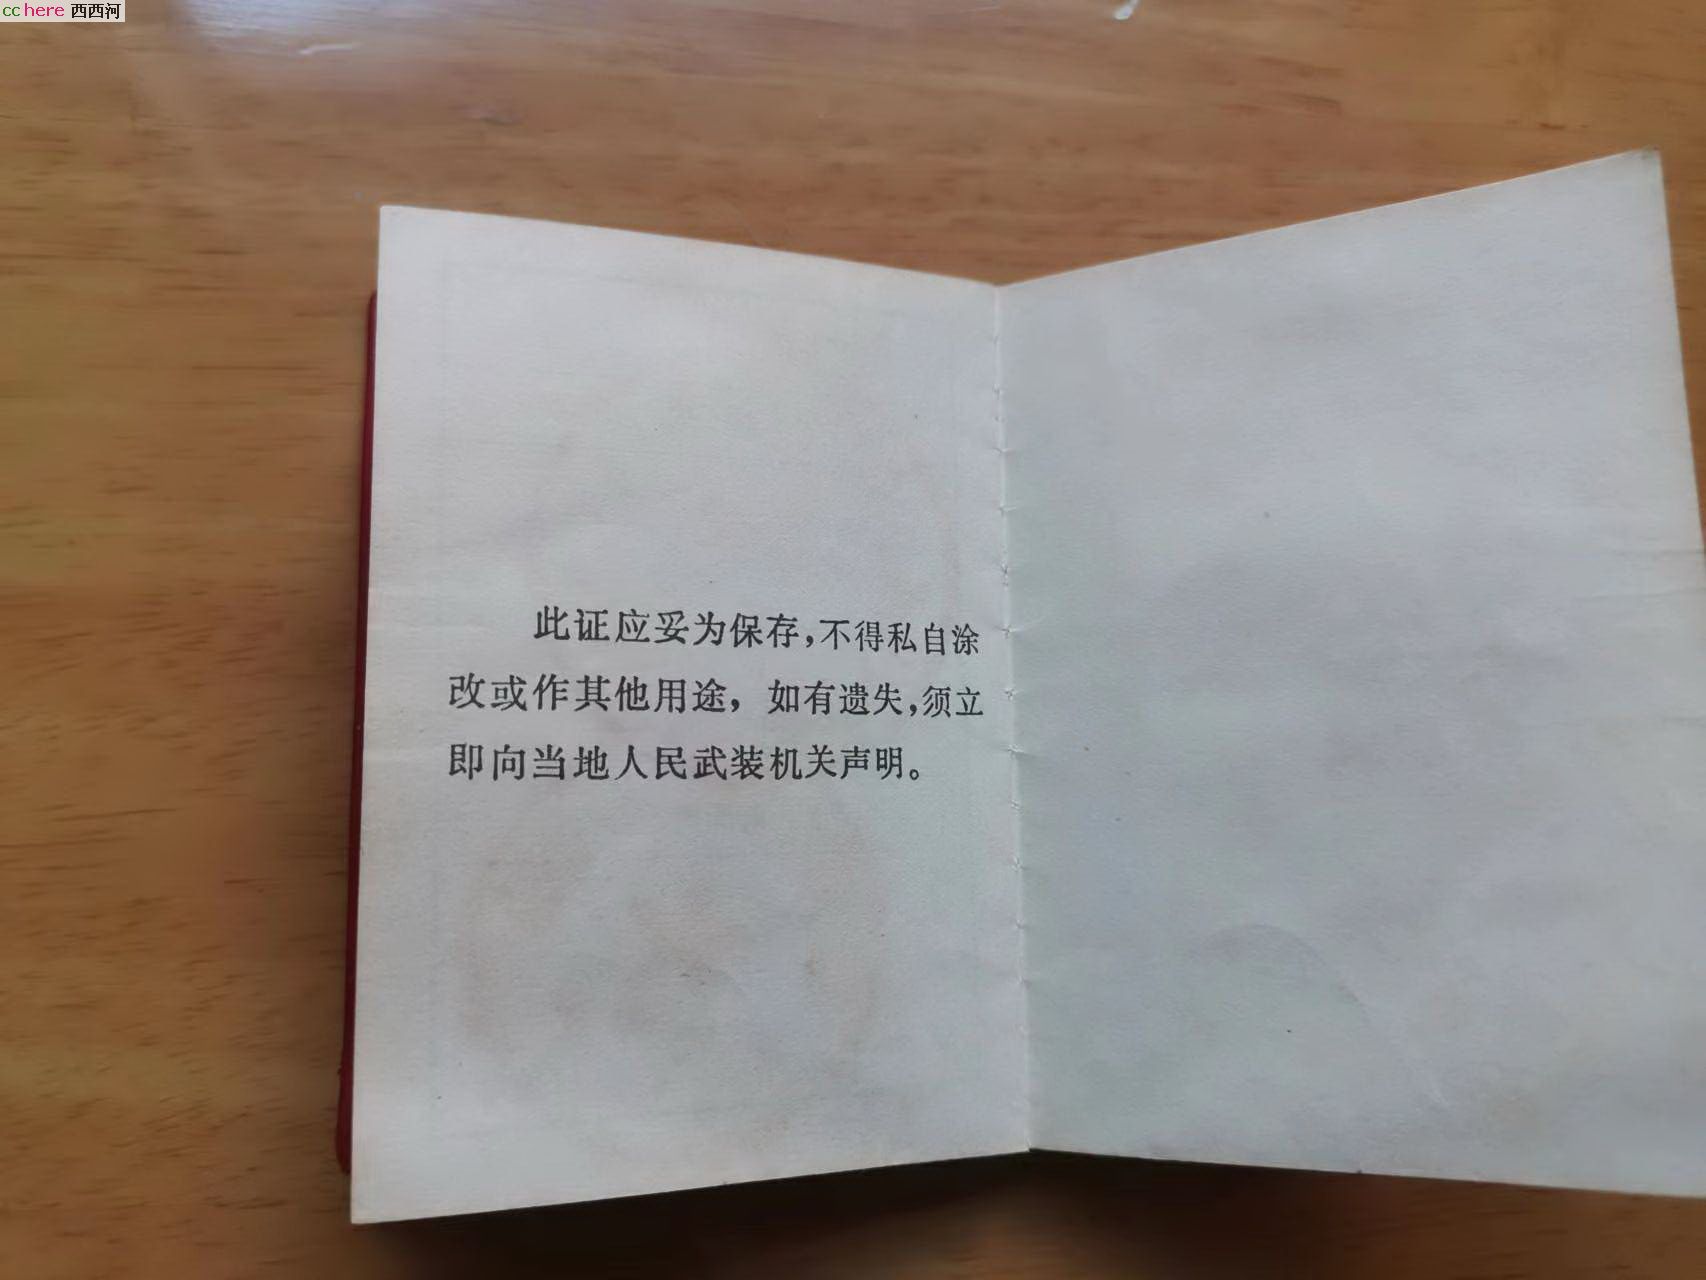 cchere 西西河
此证应妥为保存，不得私自涂
改或作其他用途，如有遗失，须立
即向当地人民武装机关声明。